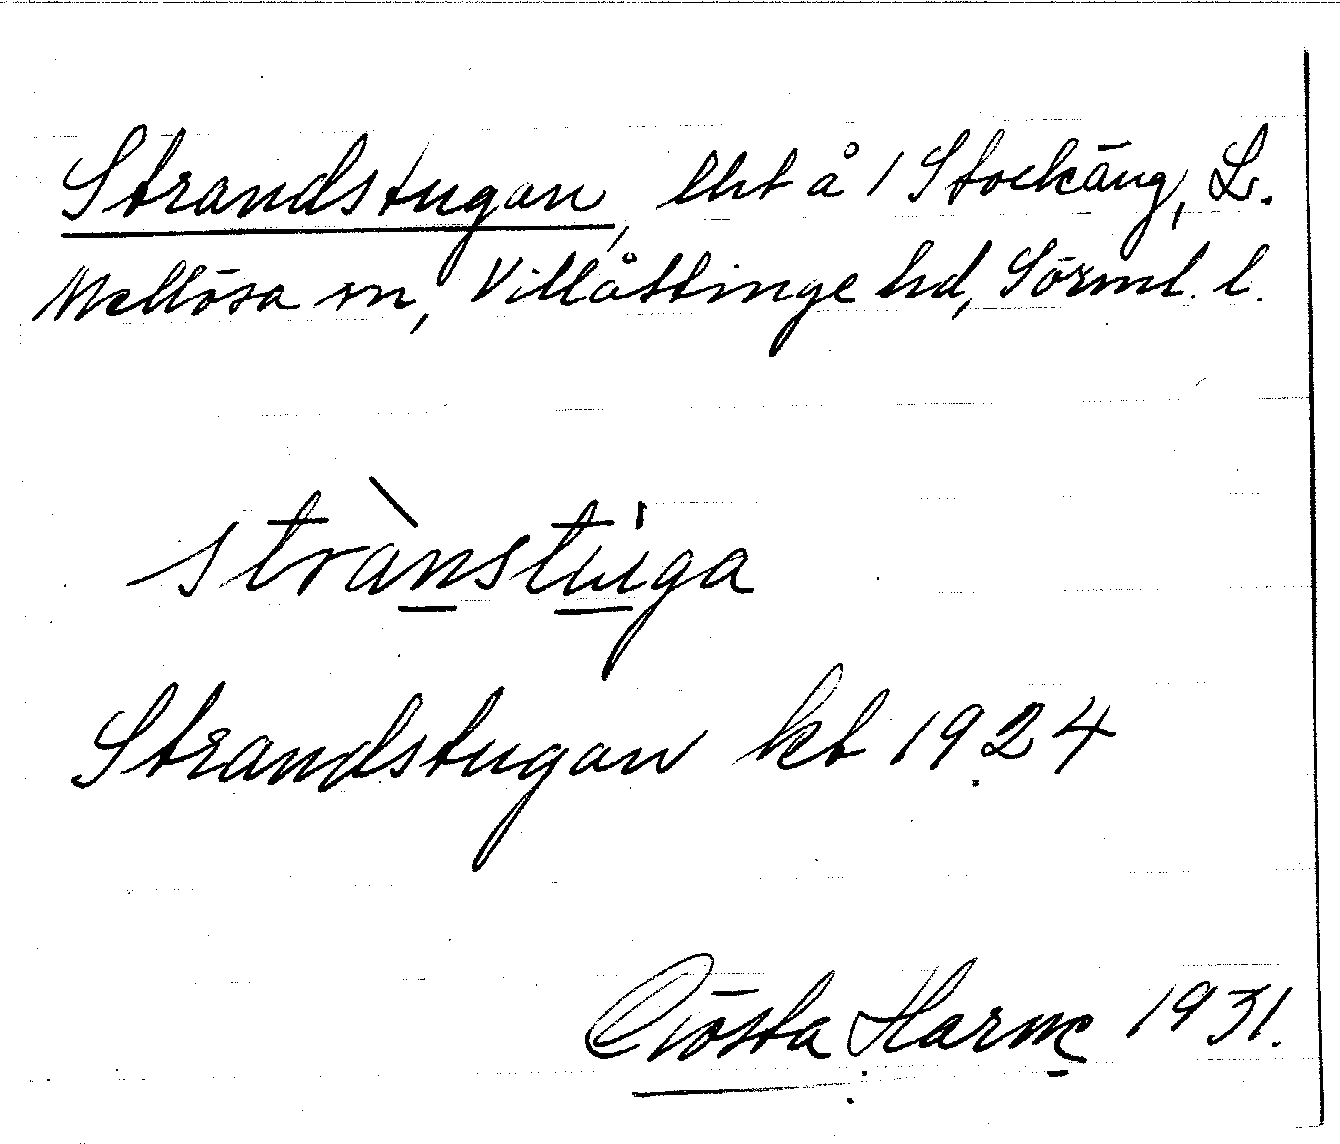 Strandstugan, lht å 1 Stockäng, L.
Mellösa sn, Villåttinge hd, Sörml. l.
strànstu̇ga
Strandstugan kt 1924
Gösta Harne 1931.